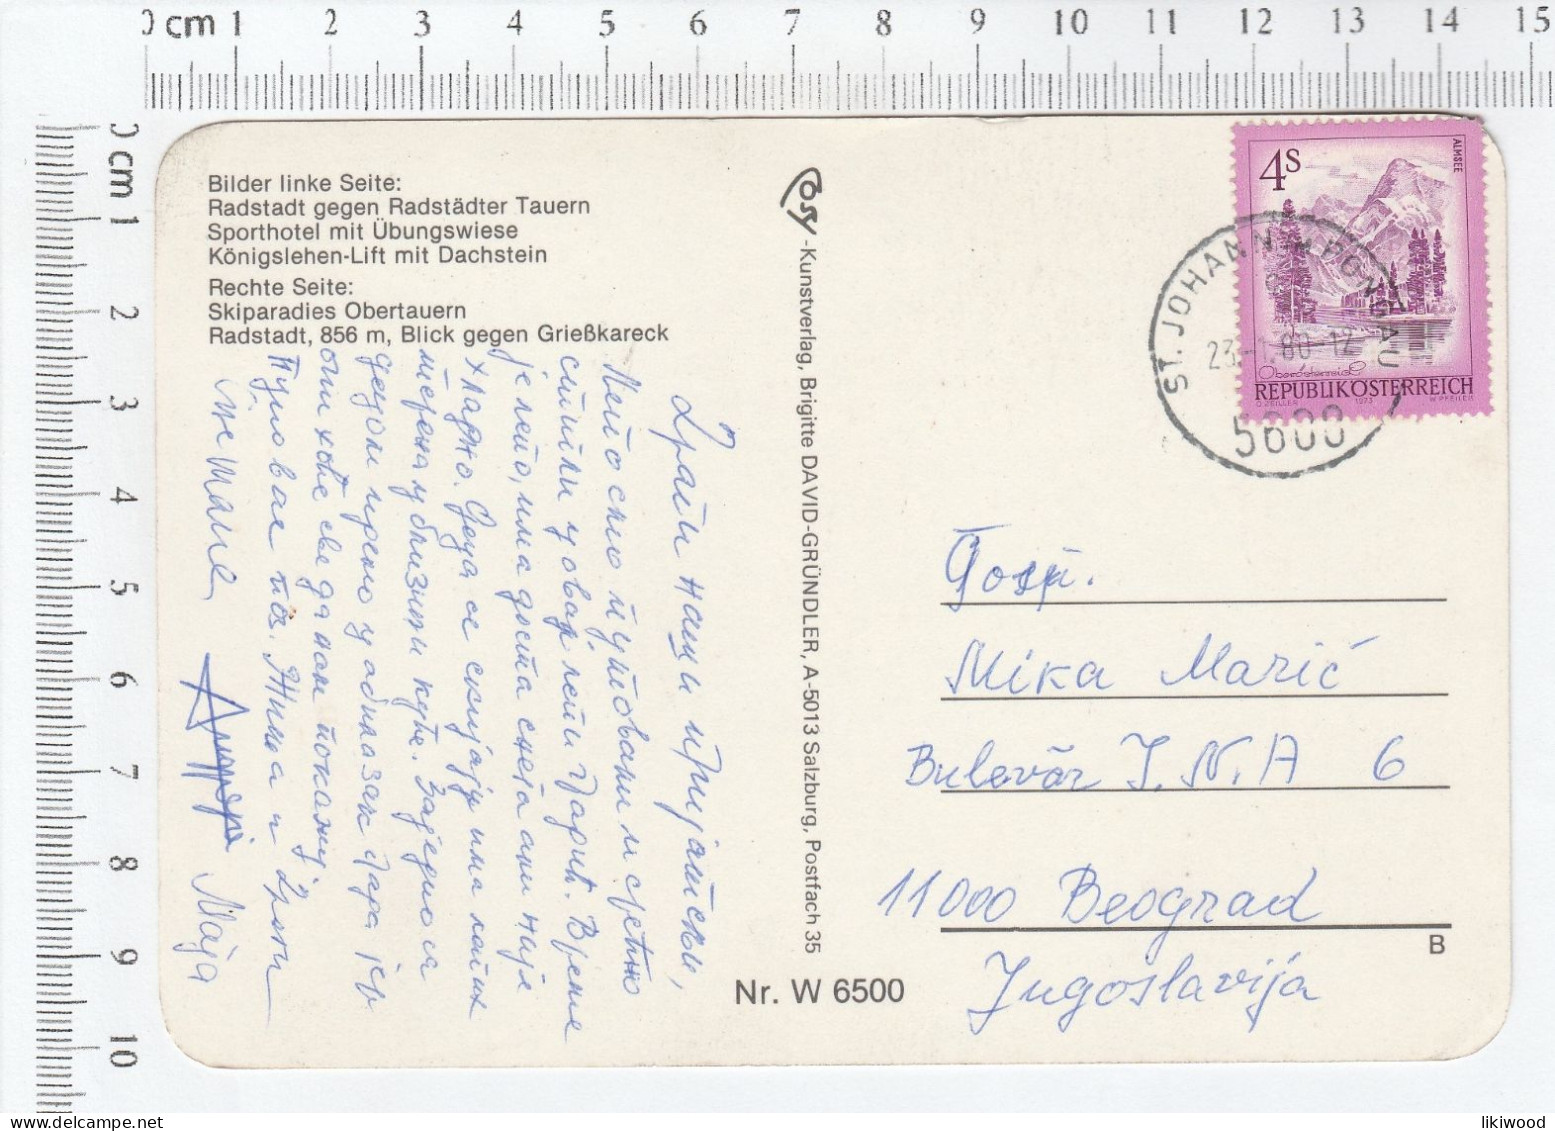 0 cm 1 2 3 4 5 6 7 8 9 10 11 12 13 14 15
0 cm 1 2 3 4 5 6 7 8 9 10
Bilder linke Seite:
Radstadt gegen Radstädter Tauern
Sporthotel mit Übungswiese
Königslehen-Lift mit Dachstein
Rechte Seite:
Skiparadies Obertauern
Radstadt, 856 m, Blick gegen Grießkareck
Cosy-Kunstverlag, Brigitte DAVID-GRÜNDLER, A-5013 Salzburg, Postfach 35
Nr. W 6500
4S
ALMSEE
Oberösterreich
REPUBLIK ÖSTERREICH
1973
ST. JOHANN IM PONGAU
80-12
5600
Драги наши пријатељи,
Лепо смо путовали и срећно
стигли у овај лепи крај. Време
је лепо, има доста снега али није
хладно. Деца се скијају има лаких
терена у близини куће. Заједно са
дедом
они хоће све да нам покажу
Пуно вас воле. Жика и
Маја
Госп.
Mika Marić
Bulevar J.N.A 6
11000 Beograd
Jugoslavija
B
likiwood